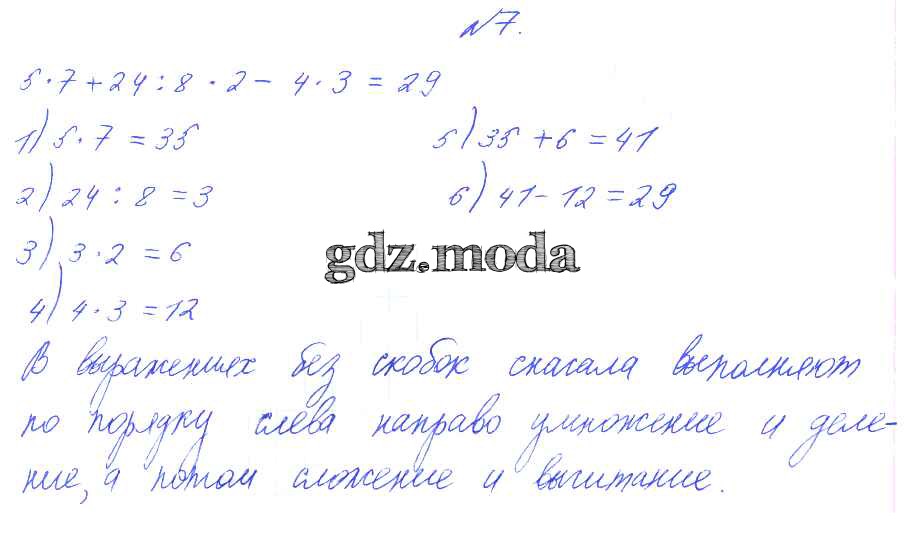 №7.
5·7+24:8·2-4·3=29
1) 5·7=35
5) 35+6=41
2) 24:8=3
6) 41-12=29
3) 3·2=6
gdz.moda
4) 4·3=12
В выражениях без скобок сначала выполняют
по порядку слева направо умножение и деле-
ние, а потом сложение и вычитание.